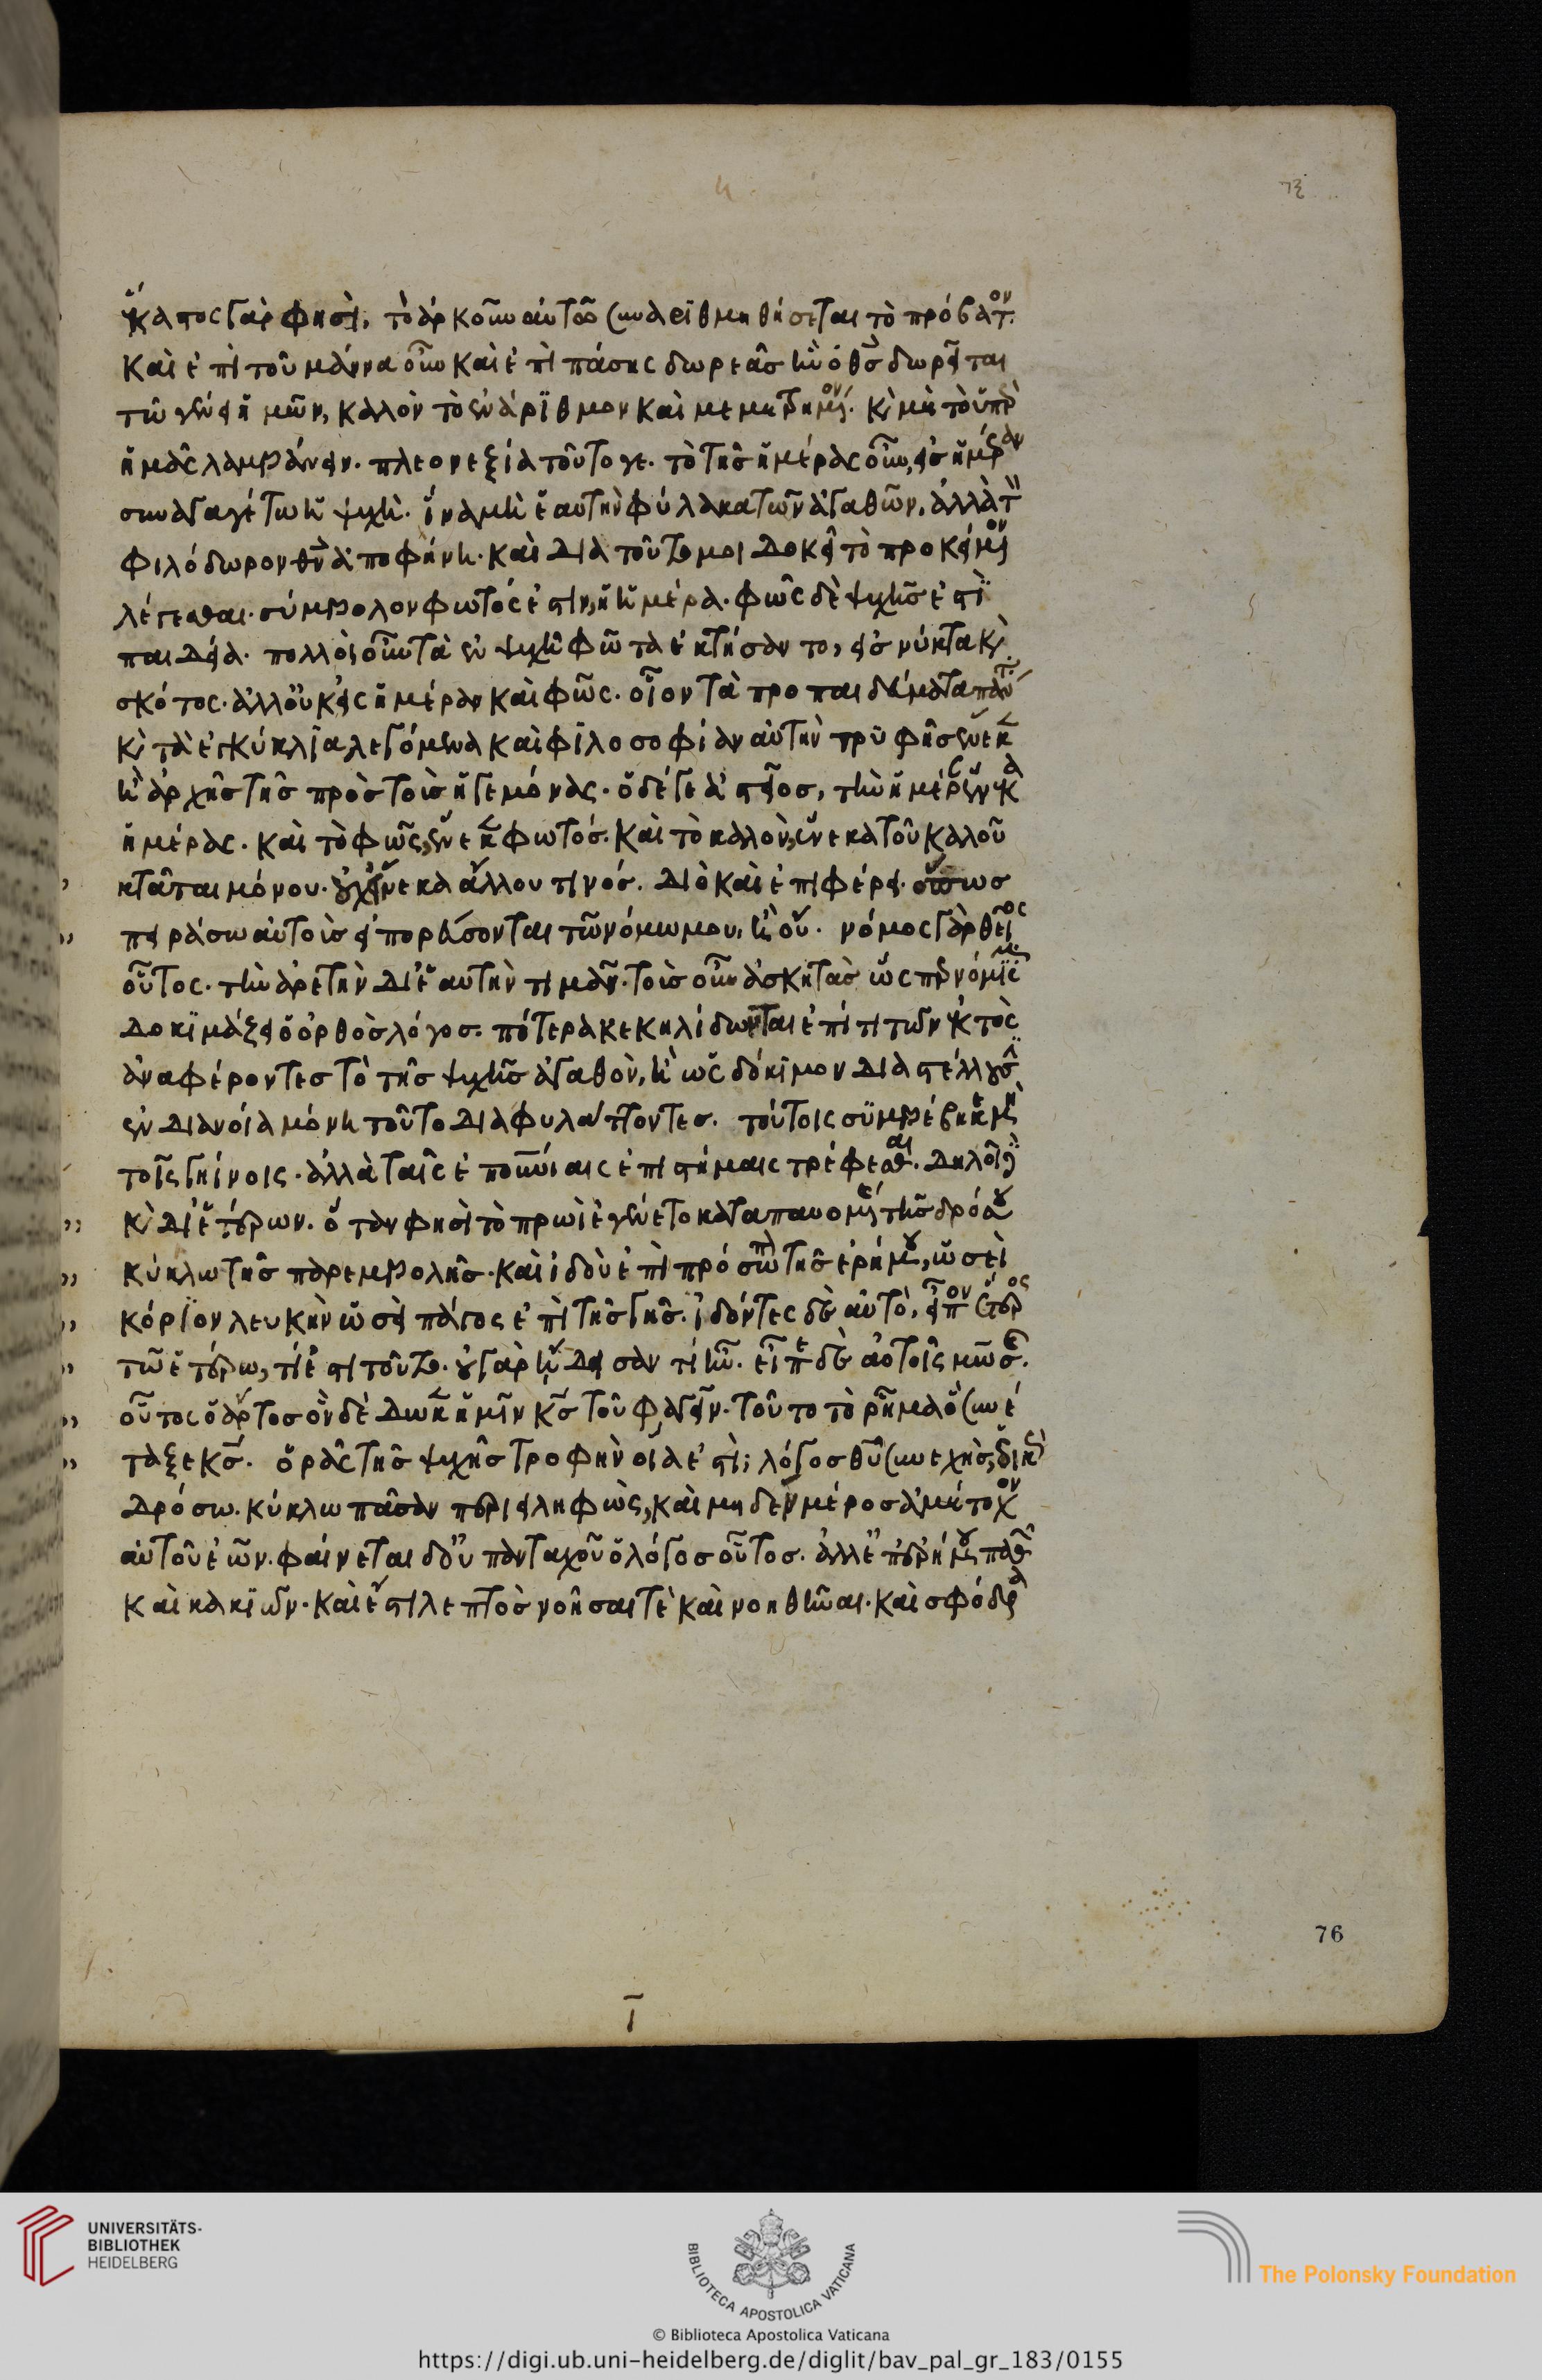 ἕκαστος γὰρ φησὶ, τὸ ἀρκοῦν αὐτῶ συναριθμηθήσεται τὸ πρόβατον.
καὶ ἐπὶ τοῦ μάννα οὖν καὶ ἐπὶ πάσης δωρεᾶς ἣν ὁ θς δωρεῖται
τῶ γένει ἡμῶν, καλὸν τὸ ἐνάριθμον καὶ μεμετρημένον. καὶ μὴ τὸ ὑπὲρ
ἡμᾶς λαμβάνειν. πλεονεξία τοῦτο γε. τὸ τῆς ἡμέρας οὖν, εἰς ἡμέραν
συναγαγέτω ἡ ψυχὴ. ἵνα μὴ ἑαυτὴν φύλακα τῶν ἀγαθῶν, ἀλλὰ τὸν
φιλόδωρον θν ἀποφήνη. καὶ διὰ τοῦτο μοι δοκεῖ τὸ προκείμενον
λέγεσθαι. σύμβολον φωτός ἐστιν, ἡ ἡμέρα. φῶς δὲ ψυχῆς ἐστὶ
παιδεία. πολλοὶ οὖν τὰ ἐν ψυχῆ φῶτα ἐκτήσαντο, εἰς νύκτα καὶ
σκότος. ἀλλ' οὐκ εἰς ἡμέραν καὶ φῶς. οἷον τὰ προπαιδεύματα πάντα
καὶ τὰ ἐγκύκλια λεγόμενα καὶ φιλοσοφίαν αὐτὴν τρυφῆς ἕνεκα
ἢ ἀρχῆς τῆς πρὸς τοὺς ἡγεμόνας. ὁ δέ γε ἀστεῖος, τὴν ἡμέραν ἕνεκα
ἡμέρας. καὶ τὸ φῶς, ἕνεκα φωτός. καὶ τὸ καλὸν, ἕνεκα τοῦ καλοῦ
κτᾶται μόνου. οὐχ ἕνεκα ἄλλου τινός. διὸ καὶ ἐπιφέρει. ὅπως
πειράσω αὐτοὺς εἰ πορεύσονται τῶ νόμω μου, ἢ οὔ. νόμος γὰρ θεῖος
οὗτος. τὴν ἀρετὴν δι' ἑαυτὴν τιμᾶν. τοὺς οὖν ἀσκητὰς ὥσπερ νόμισμα
δοκιμάζει ὁ ὀρθὸς λόγος. πότερα κεκηλίδωνται ἐπί τι τῶν ἐκτὸς
ἀναφέροντες τὸ τῆς ψυχῆς ἀγαθὸν, ἢ ὡς δόκιμον διαστέλλουσιν
ἐν διανοία μόνη τοῦτο διαφυλάττοντες. τούτοις συμβέβηκε μὴ
τοῖς γηίνοις. ἀλλὰ ταῖς ἐπουρανίαις ἐπιστήμαις τρέφεσθαι. δηλοῖ δὲ
καὶ δι' ἑτέρων. ὅταν φησὶ τὸ πρωὶ ἐγένετο καταπαυομένης τῆς δρόσου
κύκλω τῆς παρεμβολῆς. καὶ ἰδοὺ ἐπὶ πρόσωπον τῆς ἐρήμου, ὡσεὶ
κόριον λευκὴν ὡσεὶ πάγος ἐπὶ τῆς γῆς. ἰδόντες δὲ αὐτὸ, εἶπον ἕτερος
τῶ ἑτέρω, τί ἐστι τοῦτο. οὐ γὰρ ἤδεισαν τί ἦν. εἶπε δὲ αὐτοῖς μωσῆς.
οὗτος ὁ ἄρτος ὃν δέδωκεν ἡμῖν κς τοῦ φαγεῖν. τοῦτο τὸ ῥῆμα ὃ συνέ
ταξε κς. ὁρᾶς τῆς ψυχῆς τροφὴν οἵα ἐστὶ; λόγος θυ συνεχὴς, ἐοικὼς
δρόσω. κύκλω πᾶσαν περιειληφὼς, καὶ μηδὲν μέρος ἀμέτοχον
αὐτοῦ ἐῶν. φαίνεται δ' οὐ πανταχοῦ ὁ λόγος οὗτος. ἀλλ' ἐπ' ἐρήμου παθῶν
καὶ κακιῶν. καὶ ἔστι λεπτὸς νοῆσαι τὲ καὶ νοηθῆναι. καὶ σφόδρα
76
ῑ
UNIVERSITÄTS-
BIBLIOTHEK
HEIDELBERG
BIBLIOTECA APOSTOLICA VATICANA
The Polonsky Foundation
© Biblioteca Apostolica Vaticana
https://digi.ub.uni-heidelberg.de/diglit/bav_pal_gr_183/0155